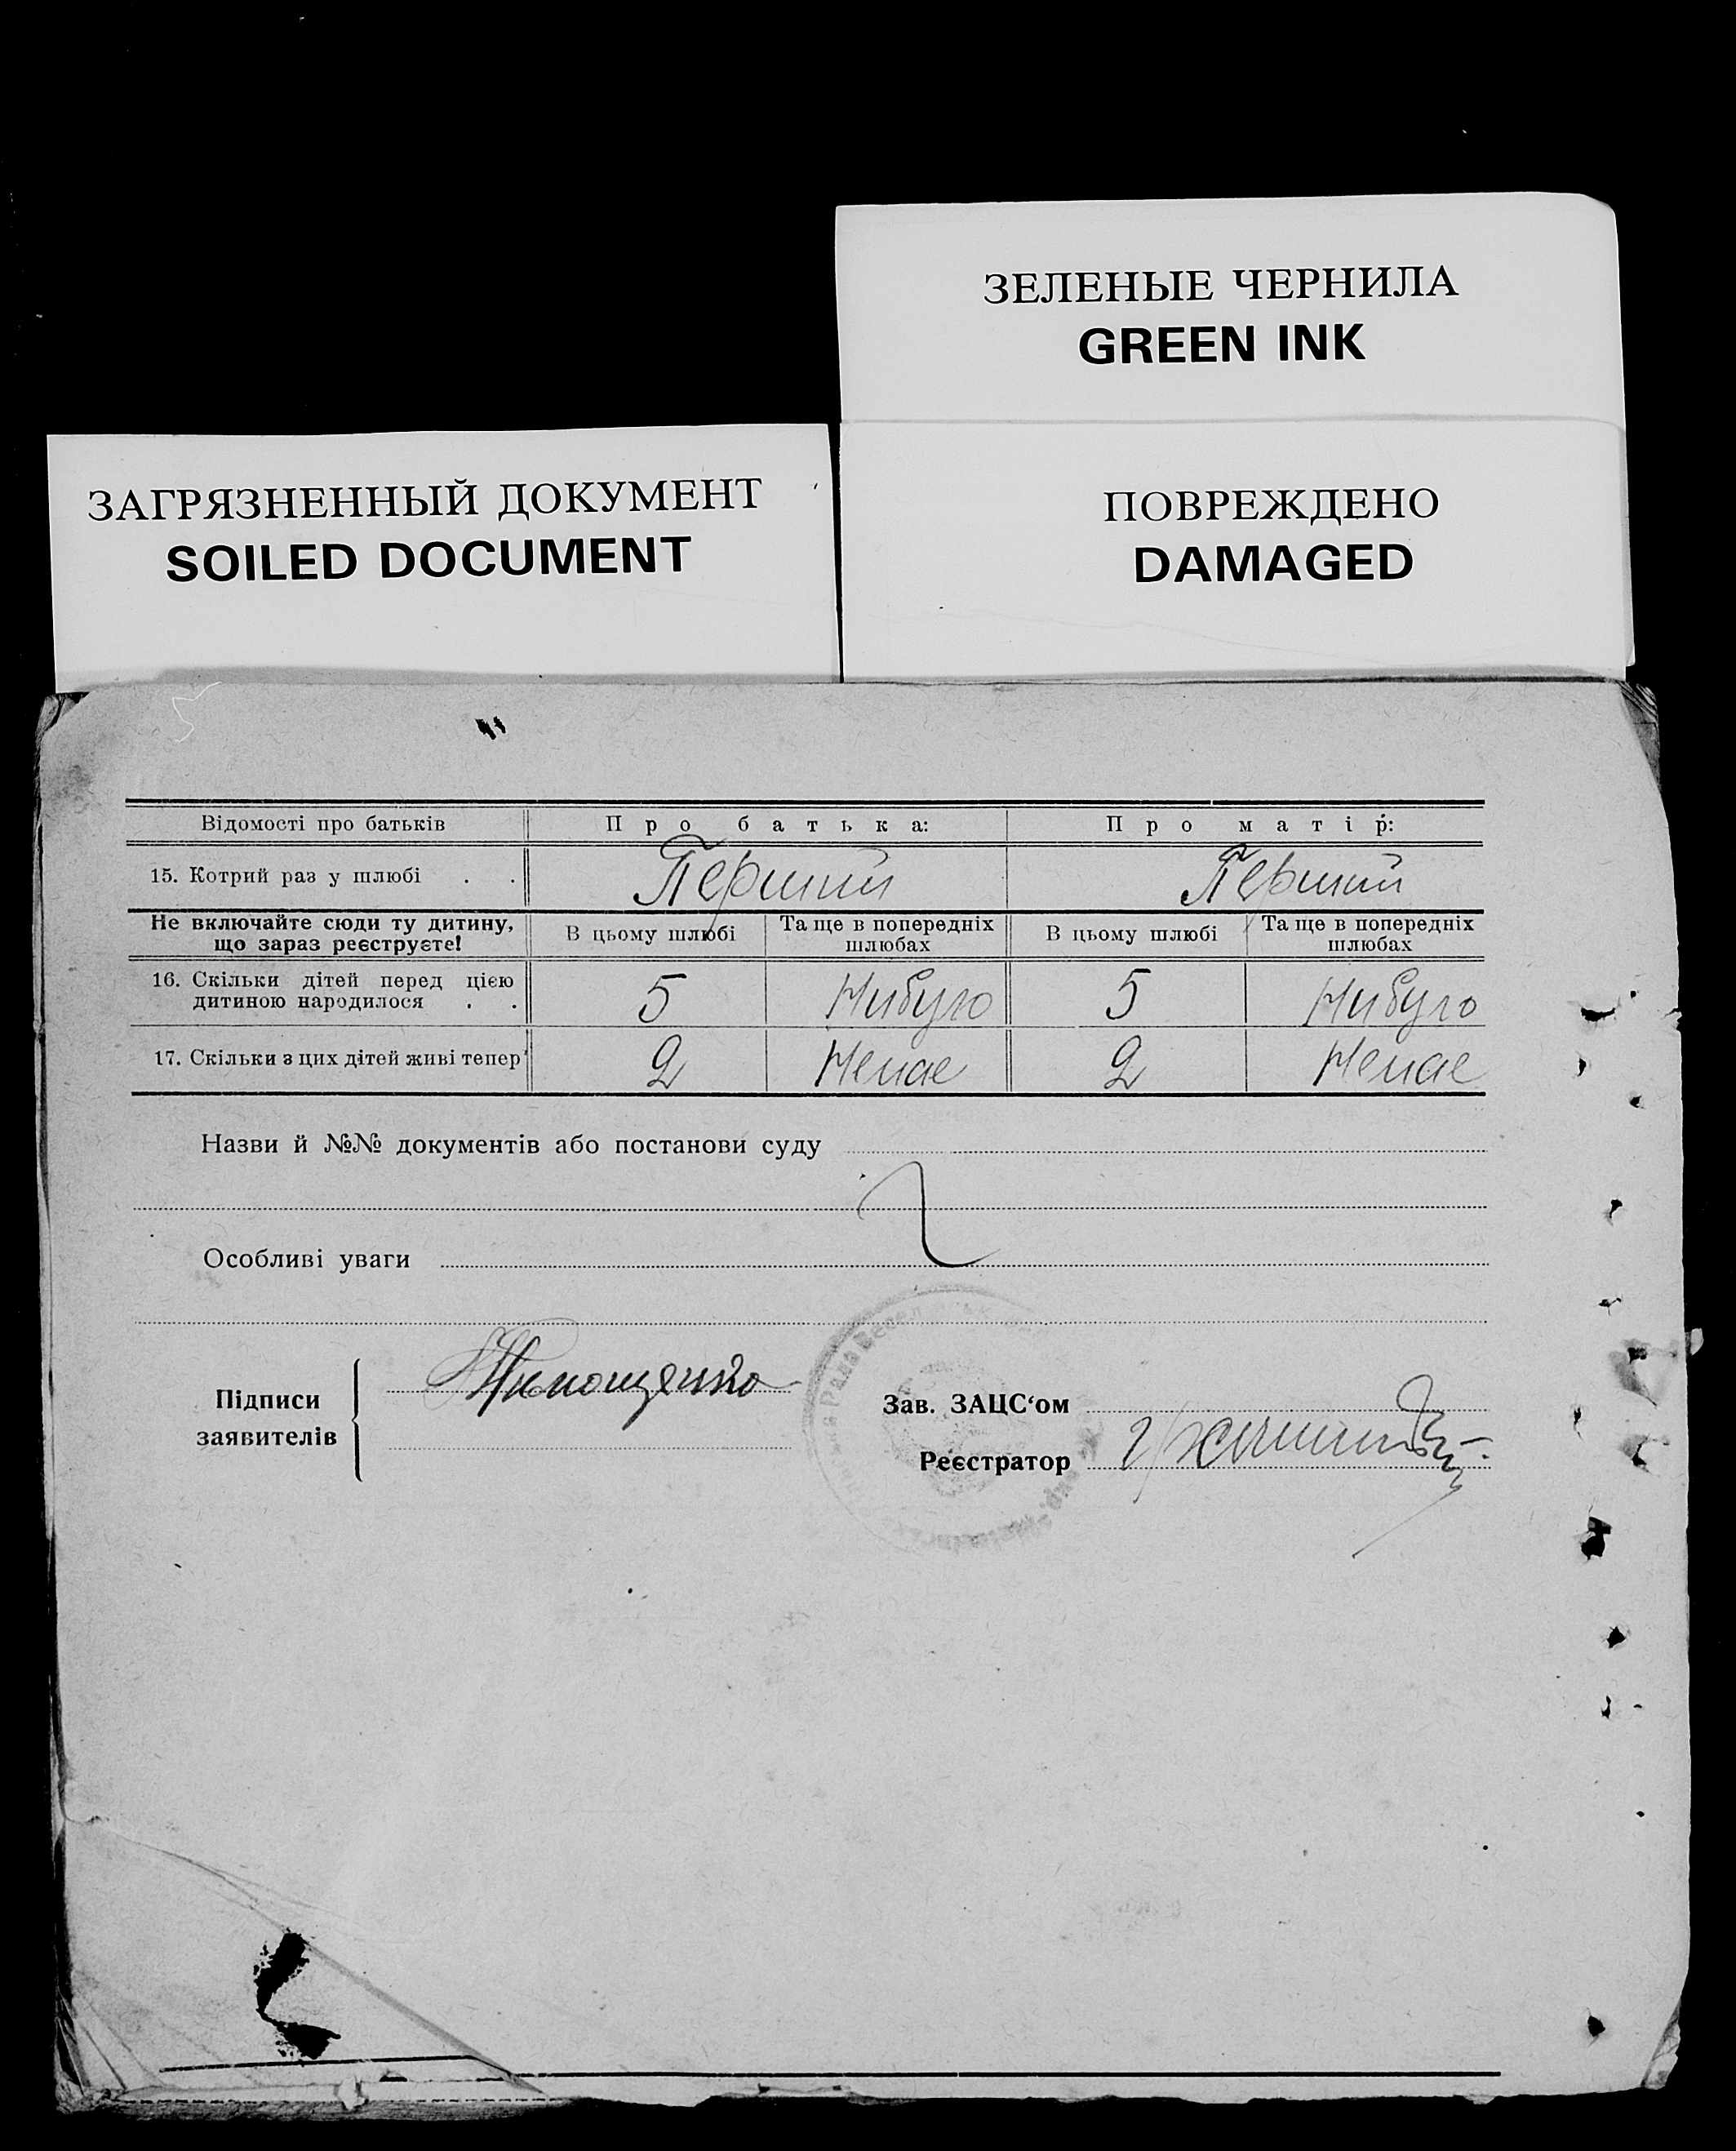 ЗЕЛЕНЫЕ ЧЕРНИЛА
GREEN INK
ЗАГРЯЗНЕННЫЙ ДОКУМЕНТ
SOILED DOCUMENT
ПОВРЕЖДЕНО
DAMAGED
Відомості про батьків Про батька: Про матір:
15. Котрий раз у шлюбі . . Перший Перший
Не включайте сюди ту дитину, що зараз реєструєте! В цьому шлюбі Та ще в попередніх шлюбах В цьому шлюбі Та ще в попередніх шлюбах
16. Скільки дітей перед цією
дитиною народилося . . 5 Нибуло 5 Нибуло
17. Скільки з цих дітей живі тепер 2 Немае 2 Немае
Назви й №№ документів або постанови суду
Особливі уваги
Підписи
заявителів
Тимощенко
Зав. ЗАЦС‘ом
Реєстратор